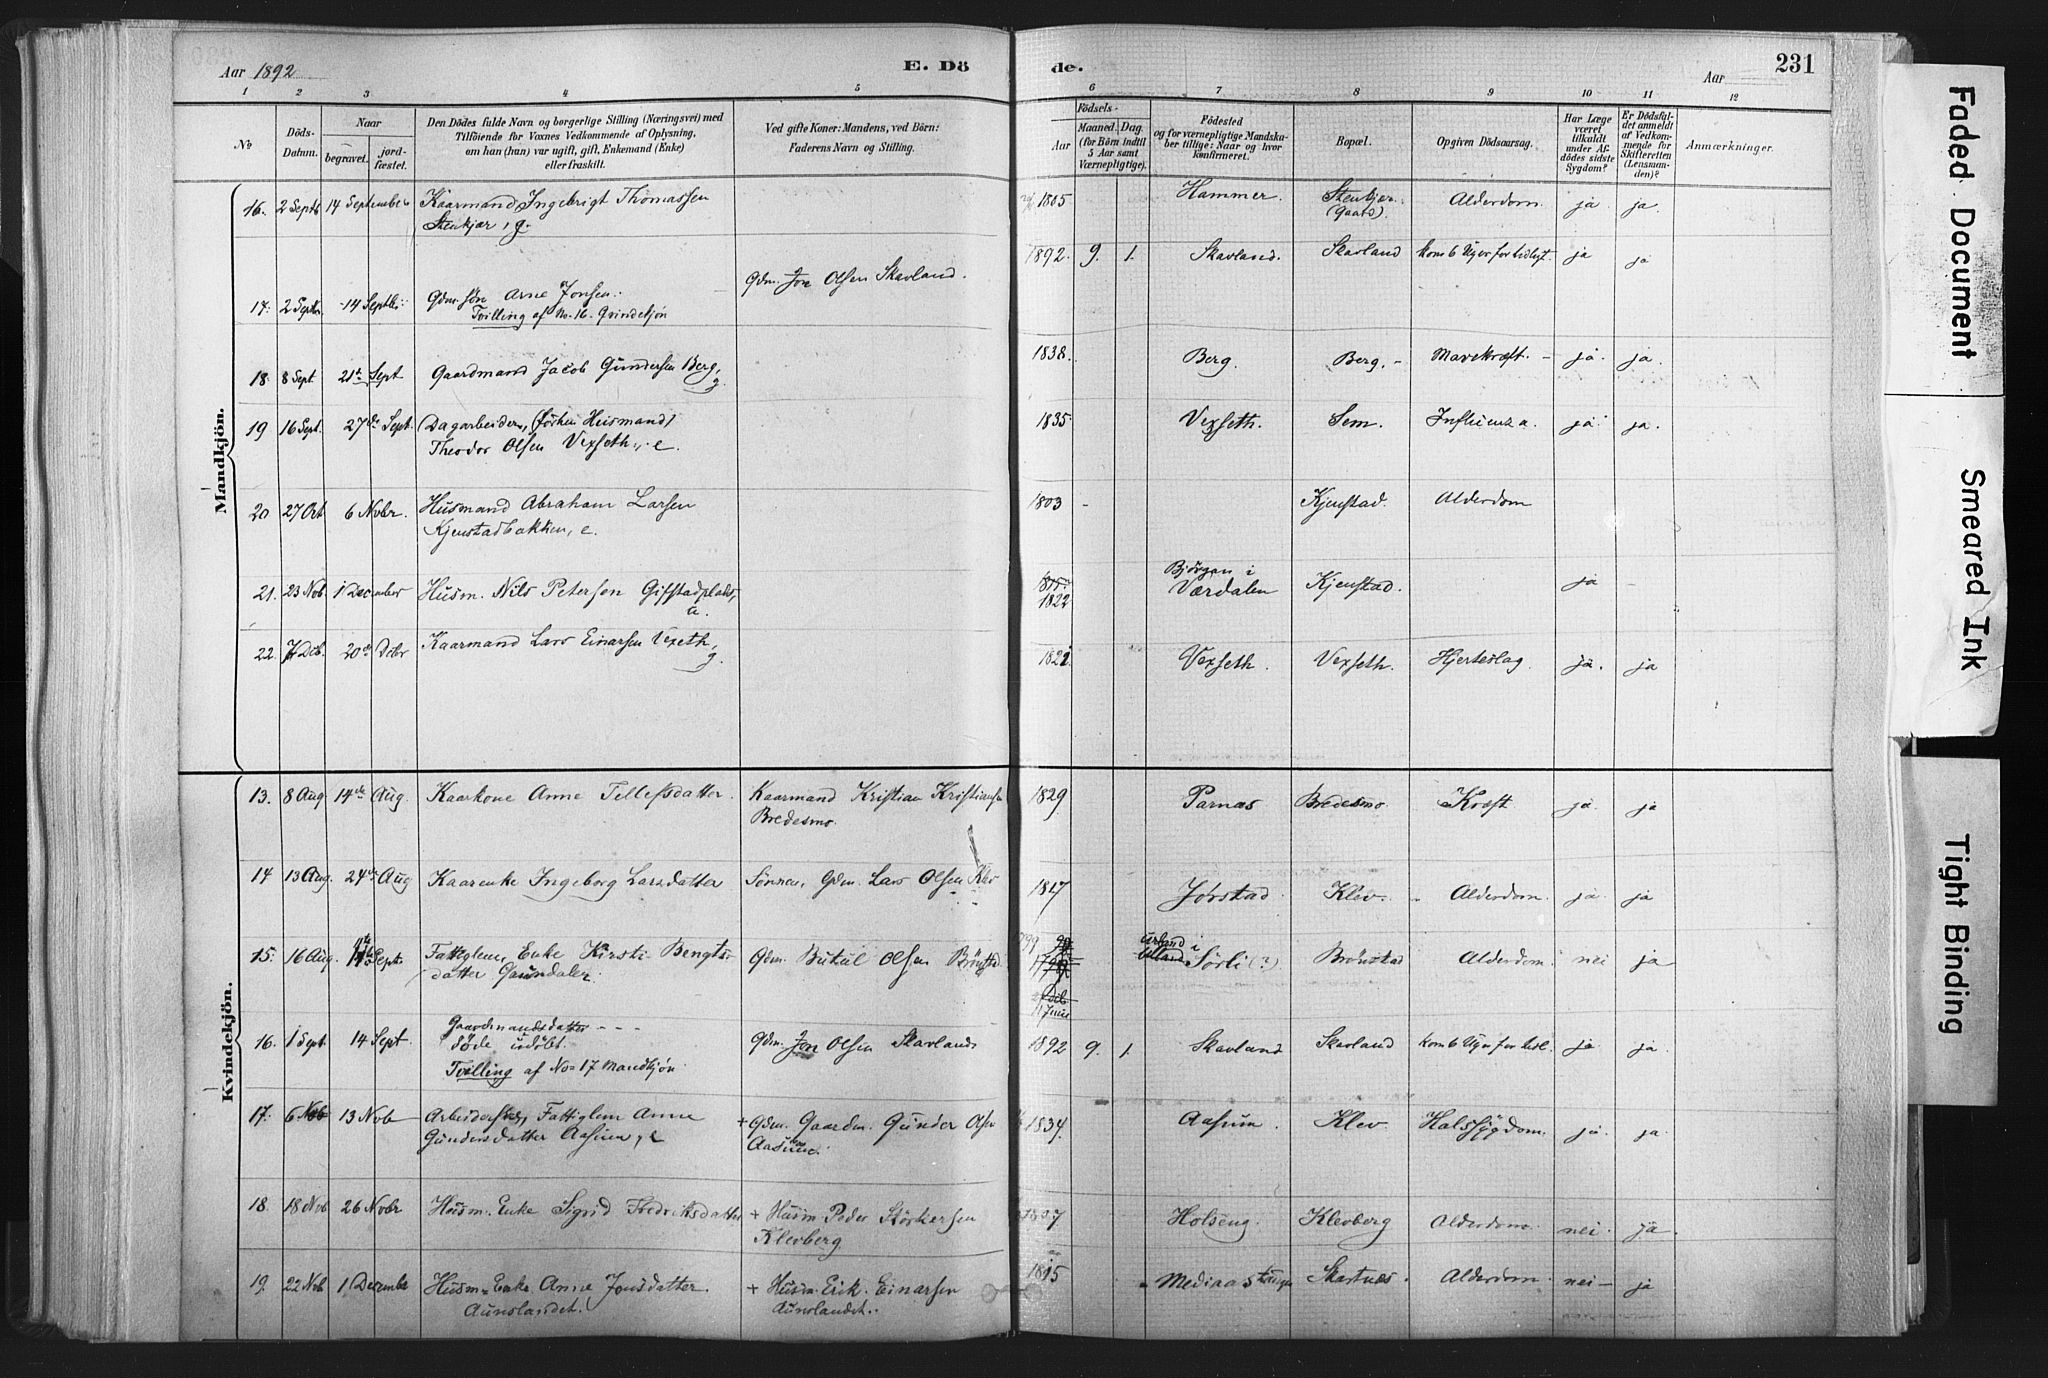 Aar 1892
E. Dö
de.
Aar
231
1 2 3 4 5 6 7 8 9 10 11 12
No
Döds-Datum.
Naar
begravet.
jord-fæstet.
Den Dödes fulde Navn og borgerlige Stilling (Næringsvei) med
Tilföiende for Voxnes Vedkommende af Oplysning,
om han (hun) var ugift, gift, Enkemand (Enke)
eller fraskilt.
Ved gifte Koner: Mandens, ved Börn:
Faderens Navn og Stilling.
Födsels-
Aar
Maaned. Dag.
(for Börn indtil
5 Aar samt
Værnepligtige).
Födested
og for værnepligtige Mandska-
ber tillige: Naar og hvor
konfirmeret.
Bopæl.
Opgiven Dödsaarsag.
Har Læge
været
tilkaldt
under Af-
dödes sidste
Sygdom?
Er Dödsfal-
det anmeldt
af Vedkom-
mende for
Skifteretten
(Lensman-
den)?
Anmærkninger.
Mandkjön.
16. 2 Septb 14 September Kaarmand Ingebrigt Thomassen
Stenkjær, g.
1805 Hammer. Stenkjer. (Gaard). Alderdom. ja ja.
17. 2 Septr. 14 Septbr: Gdm. søn Arne Jonsen.
Tvilling af No. 16. Qvindekjön
Gdm. Jon Olsen Skavland.
1892. 9. 1. Skavland. Skavland kom 6 Uger for tidligt. ja ja
18. 8 Sept 21de Sept Gaardmand Jacob Gundersen Berg, g.
1838. Berg. Berg. - Mavekræft. - ja. ja.
19 16 Sept. 27de Sept. Dagarbeider, (förhen Husmand)
Theodor Olsen Vexseth., e.
1835. Vexseth. Sem. Influenza. ja ja.
20 27 Oct 6 Novbr. Husmand Abraham Larsen
Kjenstadbakken, e.
1803 - Kjenstad. Alderdom
21. 23 Nob. 1 December Husm. Nils Petersen Gifstadplads,
1822 Björgan i
Værdalen Kjenstad. ja
22. Dcb. 20de Dcbr Kaarmand Lars Einarsen Vexeth, g.
1821 Vexseth. Vexseth. Hjerteslag ja. ja
Kvindekjön.
13. 8 Aug 14de Aug. Kaarkone Anne Tellefsdatter. Kaarmand Kristian Kristiansen
Bredesmo.
1829 Parnas Bredesmo Kræft ja ja
14 13 Aug. 24de Aug Kaarenke Ingeborg Larsdatter Sönnen, Gdm. Lars Olsen Klev
1817 Jørstad Klev. Alderdom. ja ja
15. 16 Aug. Sept. Fattiglem, Enke Kirsti Bengts-
datter
Gdm. Olsen Brönstad
1799
11 Juni
i
Sörli (?) Brönstad Alderdom nei ja
16. 1 Sept. 14 Sept. Gaardmandsdatter - - -
Döde udöbt.
Tvilling af No= 17 Mandkjön.
Gdm. Jon Olsen Skavland
1892 9. 1. Skavland Skavland kom 6 Uger for tidl. ja ja.
17. 6 Nob 13 Nob Arbeiderske, Fattiglem Anne
Gundersdatter Aasum, e
+ Gdm. Gaardm. Gunder Olsen
Aasum.
1834. Aasum. Klev Halssygdom. ja. ja.
18. 18 Nob 26 Nobr Husm: Enke Sigrid Fredriksdatter + Husm. Peder Störkersen
Klevberg
1807 Holseng. Klevberg Alderdom. nei. ja.
19. 22 Nob 1 December Husm= Enke Anne Jonsdatter.
Aunslandet.
+ Husm. Erik Einarsen
Aunslandet.
1815 Mediaas Skartnes. Alderdom. nei - ja
Faded Document
Smeared Ink
Tight Binding